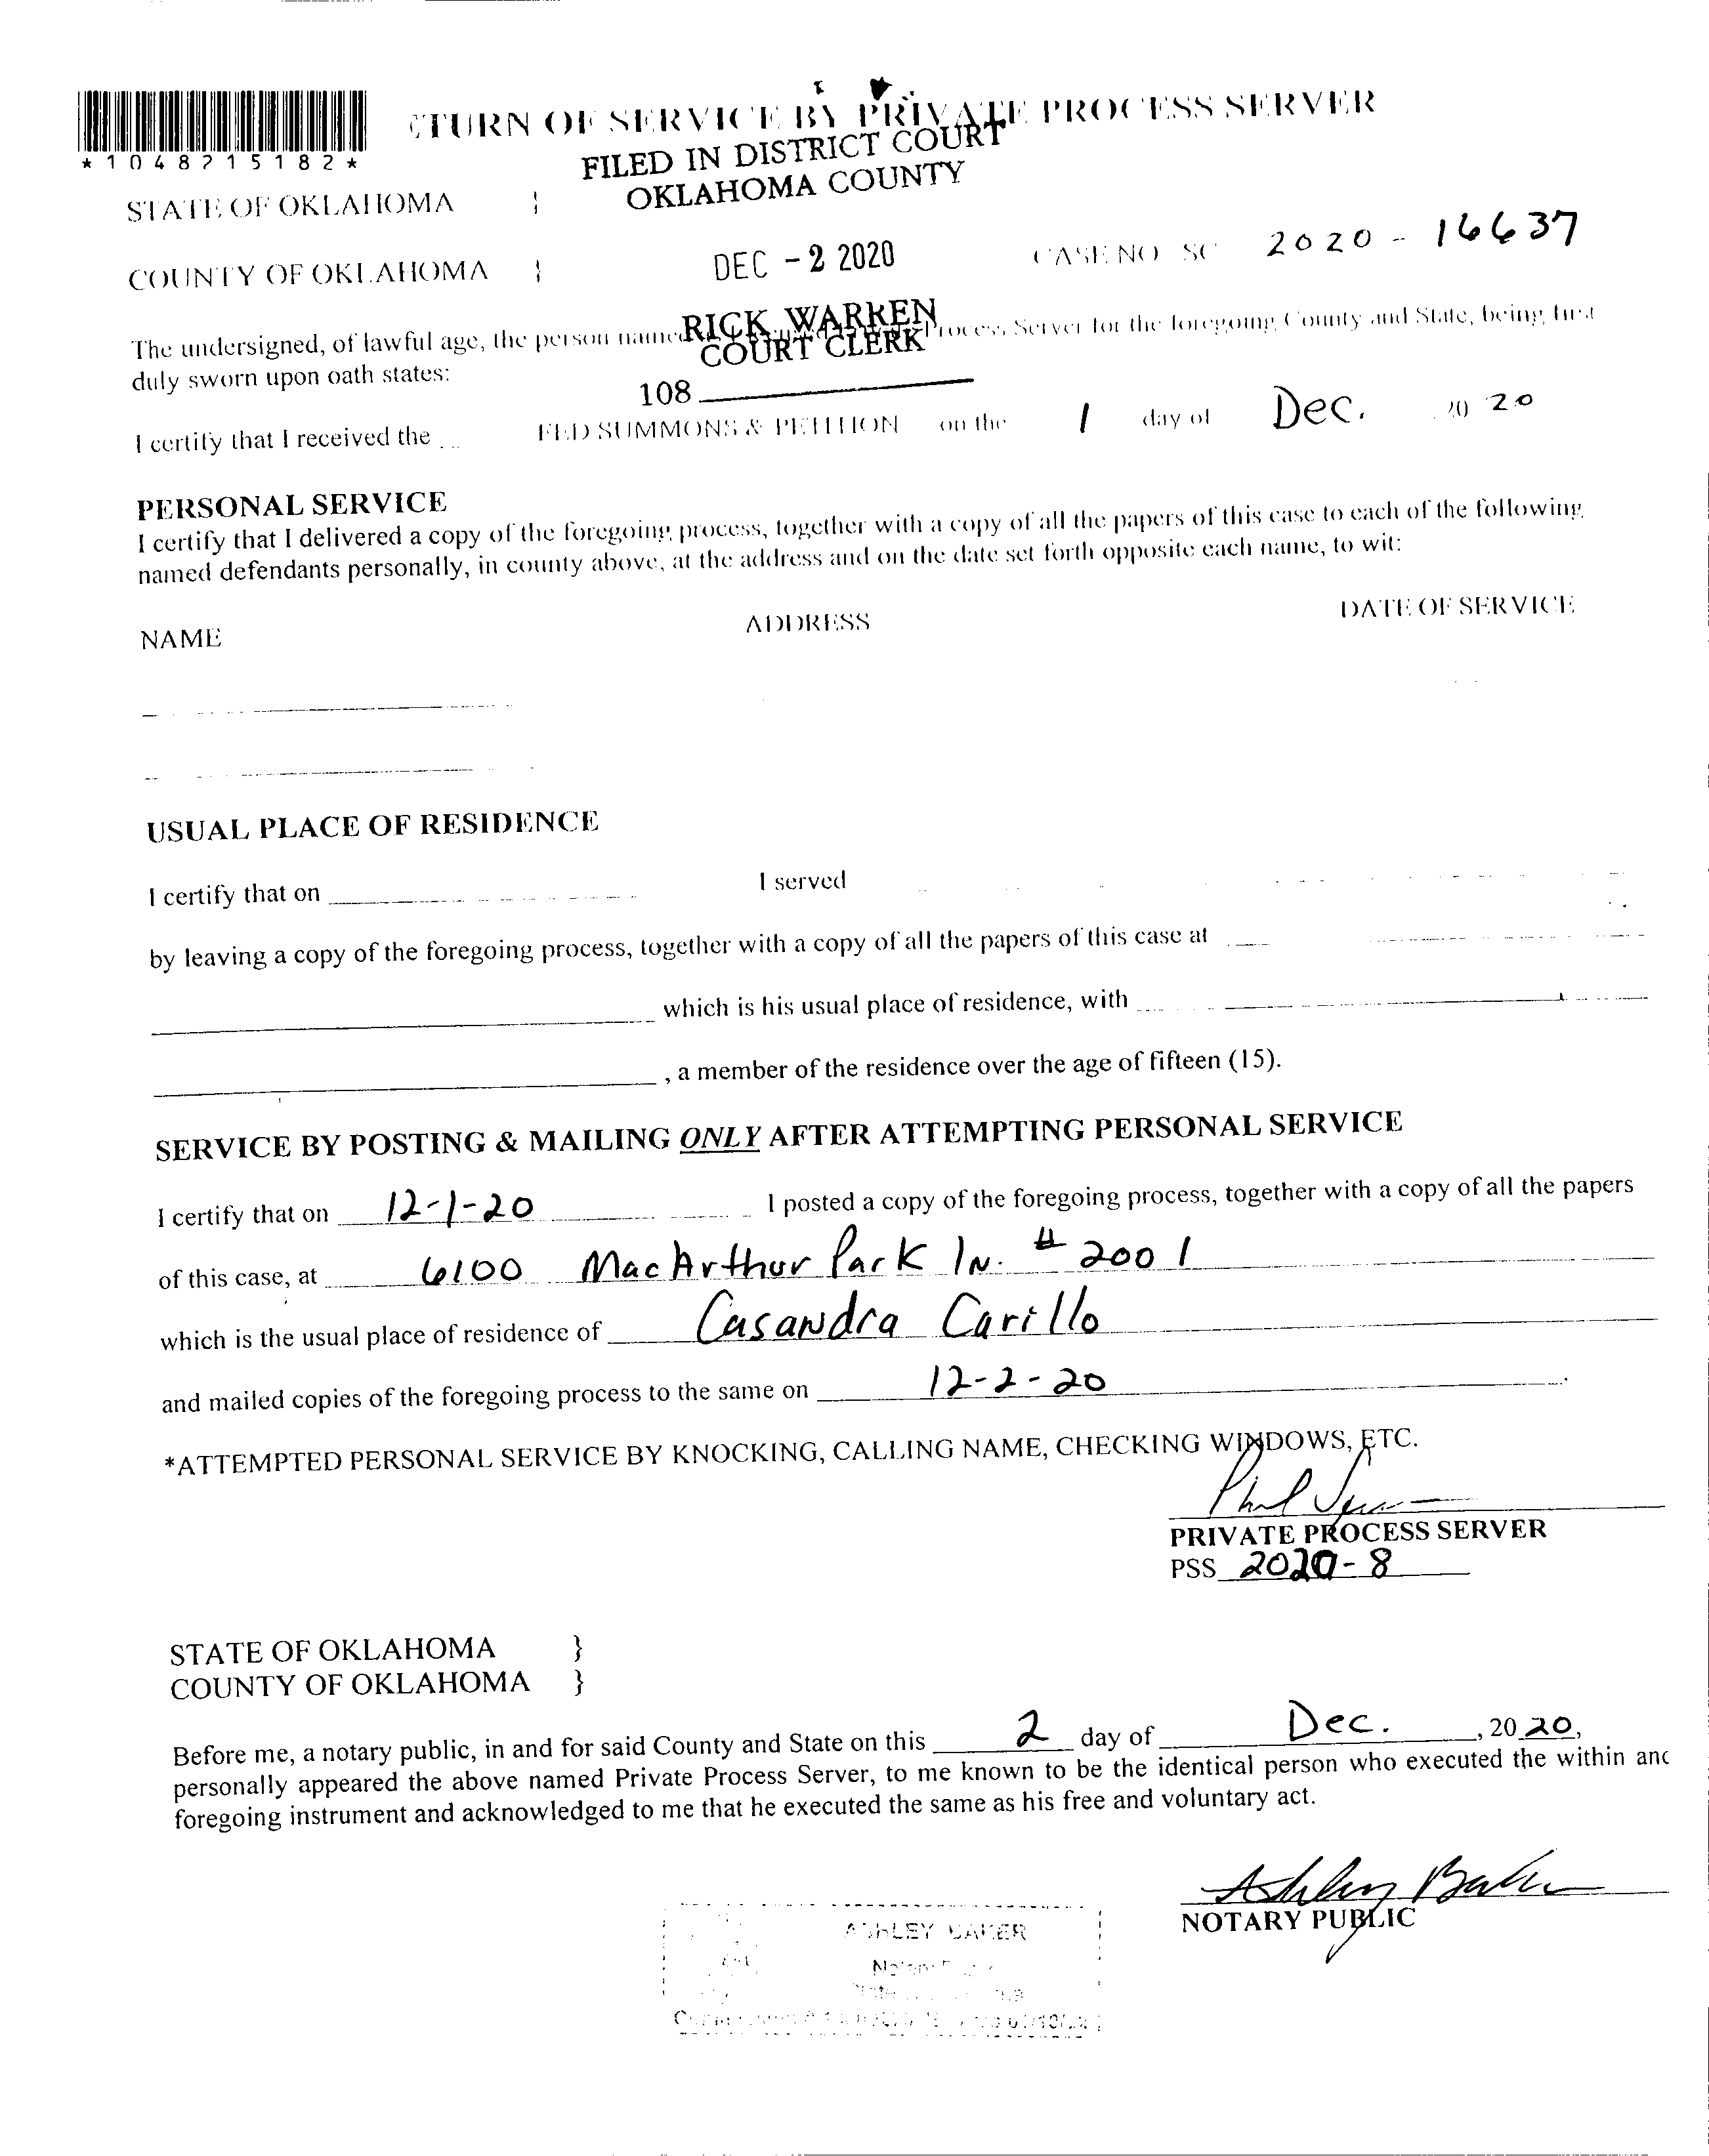 TURN OF SERVICE BY PRIVATE PROCESS SERVER
*1048715182*
FILED IN DISTRICT COURT
OKLAHOMA COUNTY
STATE OF OKLAHOMA }
DEC - 2 2020
CASE NO SC 2020 - 16637
COUNTY OF OKLAHOMA }
RICK WARREN
COURT CLERK
The undersigned, of lawful age, the person named Process Server for the foregoing County and State, being first
duly sworn upon oath states:
108
I certify that I received the FED SUMMONS & PETITION on the 1 day of Dec. 20 20
PERSONAL SERVICE
I certify that I delivered a copy of the foregoing process, together with a copy of all the papers of this case to each of the following
named defendants personally, in county above, at the address and on the date set forth opposite each name, to wit:
NAME ADDRESS DATE OF SERVICE
USUAL PLACE OF RESIDENCE
I certify that on I served
by leaving a copy of the foregoing process, together with a copy of all the papers of this case at
which is his usual place of residence, with
, a member of the residence over the age of fifteen (15).
SERVICE BY POSTING & MAILING ONLY AFTER ATTEMPTING PERSONAL SERVICE
I certify that on 12-1-20 I posted a copy of the foregoing process, together with a copy of all the papers
of this case, at 6100 MacArthur Park ln. # 2001
which is the usual place of residence of Casandra Carillo
and mailed copies of the foregoing process to the same on 12-2-20.
*ATTEMPTED PERSONAL SERVICE BY KNOCKING, CALLING NAME, CHECKING WINDOWS, ETC.
PRIVATE PROCESS SERVER
PSS 2020-8
STATE OF OKLAHOMA }
COUNTY OF OKLAHOMA }
Before me, a notary public, in and for said County and State on this 2 day of Dec. , 20 20,
personally appeared the above named Private Process Server, to me known to be the identical person who executed the within and
foregoing instrument and acknowledged to me that he executed the same as his free and voluntary act.
Ashley Baker
NOTARY PUBLIC
ASHLEY BAKER